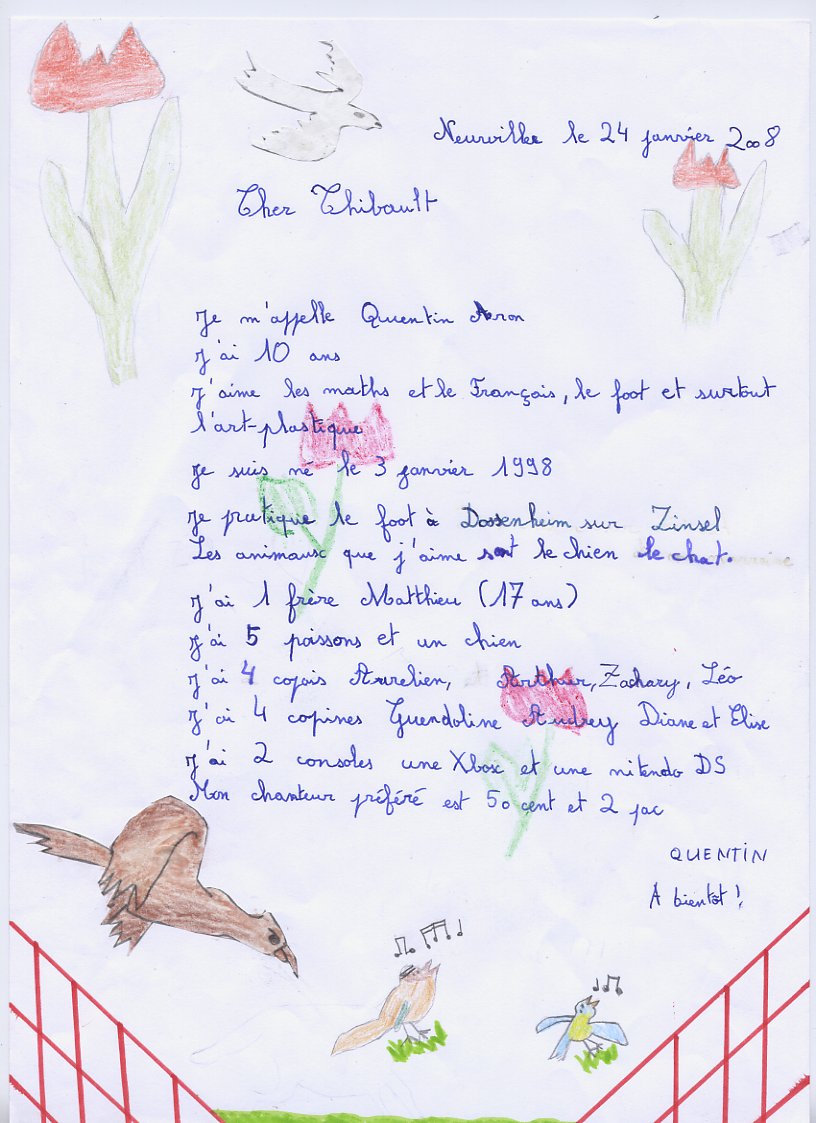 Neuville le 24 janvier 2008
Cher Thibault
Je m'appelle Quentin Aron
J'ai 10 ans
J'aime les maths et le Français, le foot et surtout
l'art-plastique
Je suis né le 3 janvier 1998
Je pratique le foot à Dossenheim sur Zinsel
Les animaux que j'aime sont le chien le chat.
J'ai 1 frère Matthieu (17 ans)
J'ai 5 poissons et un chien
J'ai 4 copais Aurelien, Arthur, Zachary, Léo
J'ai 4 copines Guendoline Audrey Diane et Elise
J'ai 2 consoles une Xbox et une nitendo DS
Mon chanteur préféré est 50 cent et 2 pac
QUENTIN
A bientôt !